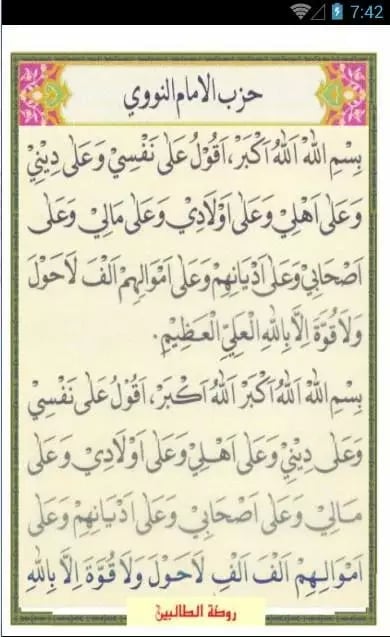 7:42
حزب الامام النووي
بِسْمِ اللهِ اَللهُ اَكْبَرْ، اَقُوْلُ عَلَى نَفْسِيْ وَعَلَى دِيْنِيْ
وَعَلَى اَهْلِيْ وَعَلَى اَوْلَادِيْ وَعَلَى مَالِيْ وَعَلَى
اَصْحَابِيْ وَعَلَى اَدْيَانِهِمْ وَعَلَى اَمْوَالِهِمْ اَلْفَ لَاحَوْلَ
وَلَا قُوَّةَ اِلَّا بِاللهِ الْعَلِيِّ الْعَظِيْمِ.
بِسْمِ اللهِ اَللهُ اَكْبَرْ اَللهُ اَكْبَرْ، اَقُوْلُ عَلَى نَفْسِيْ
وَعَلَى دِيْنِيْ وَعَلَى اَهْلِيْ وَعَلَى اَوْلَادِيْ وَعَلَى
مَالِيْ وَعَلَى اَصْحَابِيْ وَعَلَى اَدْيَانِهِمْ وَعَلَى
اَمْوَالِهِمْ اَلْفَ اَلْفِ لَاحَوْلَ وَلَا قُوَّةَ اِلَّا بِاللهِ
روضة الطالبين